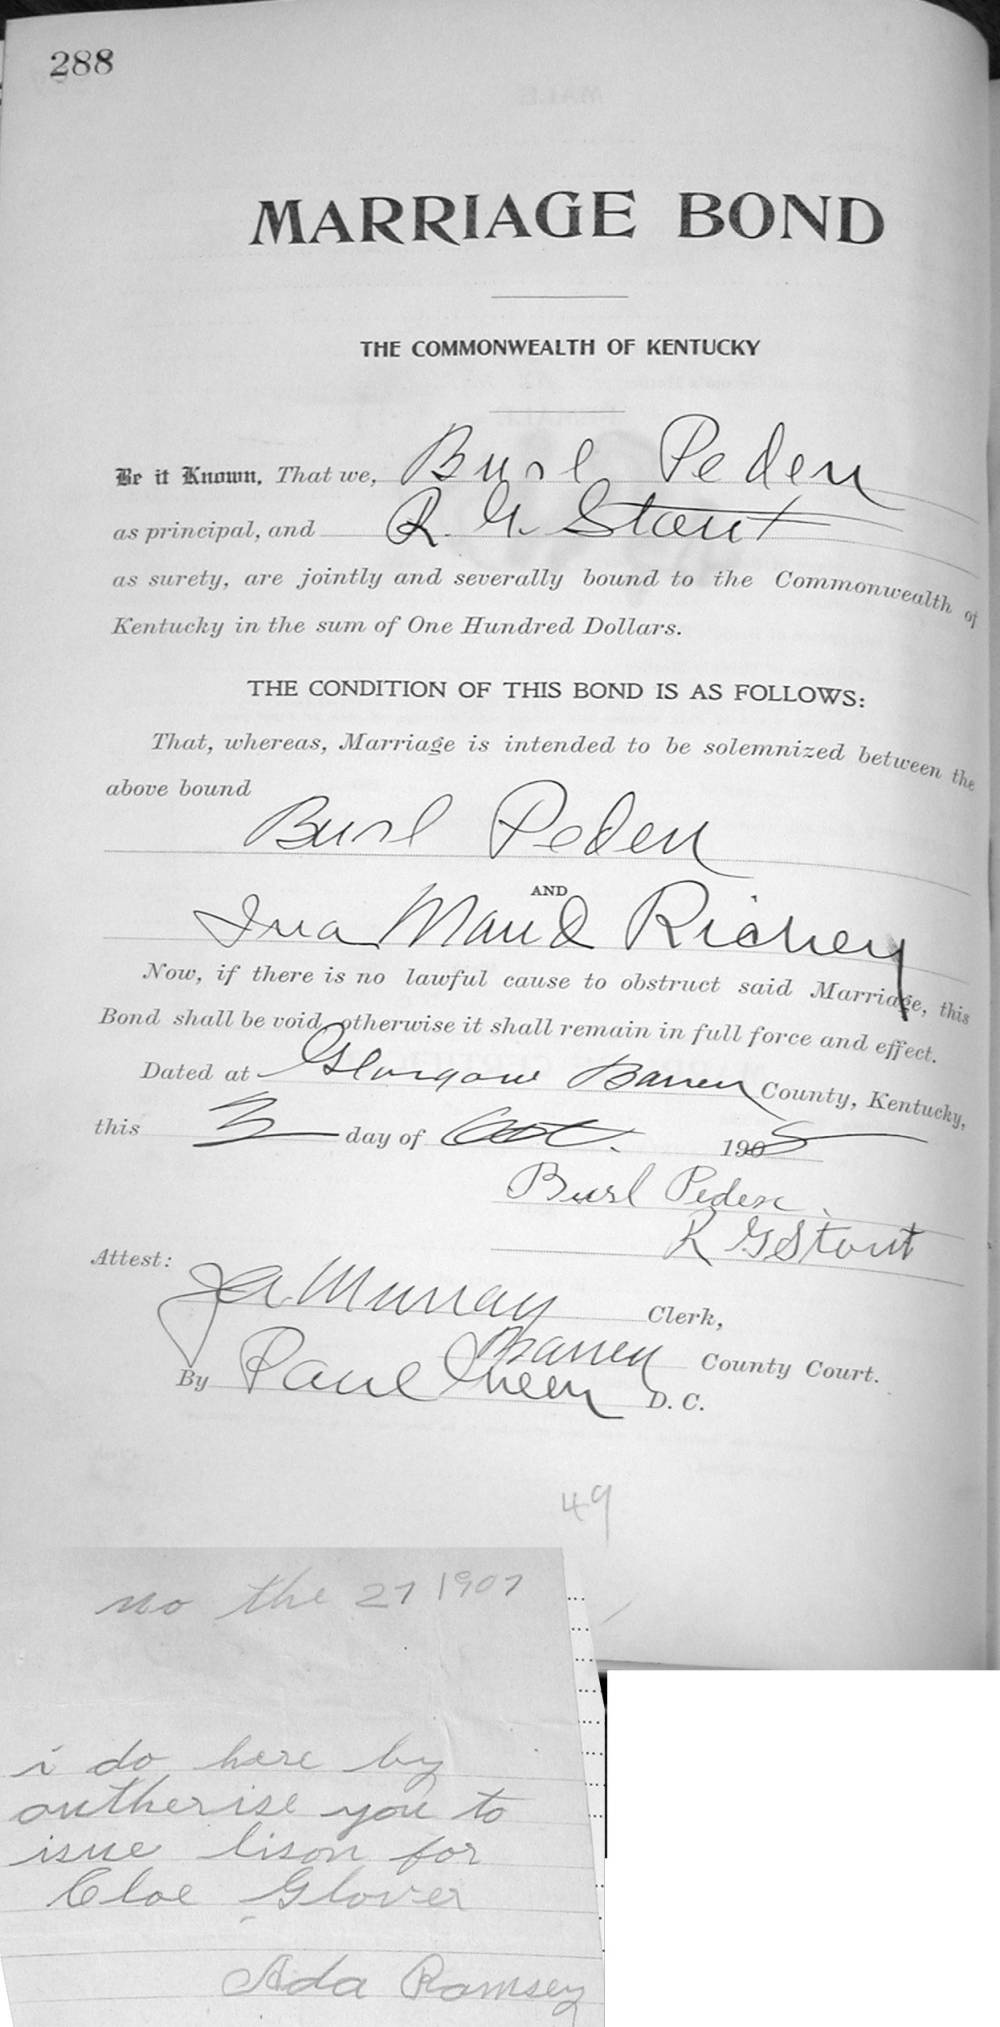 288
MARRIAGE BOND
THE COMMONWEALTH OF KENTUCKY
Be it Known, That we, Burl Peden
as principal, and R. G. Stout
as surety, are jointly and severally bound to the Commonwealth of
Kentucky in the sum of One Hundred Dollars.
THE CONDITION OF THIS BOND IS AS FOLLOWS:
That, whereas, Marriage is intended to be solemnized between the
above bound
Burl Peden
AND
Ina Maud Richey
Now, if there is no lawful cause to obstruct said Marriage, this
Bond shall be void, otherwise it shall remain in full force and effect.
Dated at Glasgow Barren County, Kentucky,
this 3 day of Oct. 1905
Burl Peden
R G Stout
Attest:
J A Murray Clerk,
Barren County Court.
By Paul Green D. C.
49
no the 27 1907
i do here by
outherise you to
isue lison for
Cloe Glover
Ada Ramsey